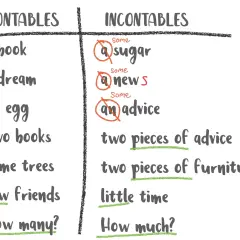 ONTABLES INCONTABLES
book some a sugar
dream some a new s
egg some an advice
wo books two pieces of advice
me trees two pieces of furnitu
w friends little time
ow many? How much?